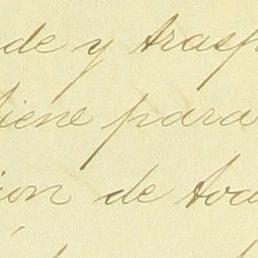 de y trasp
tiene para
ion de toda